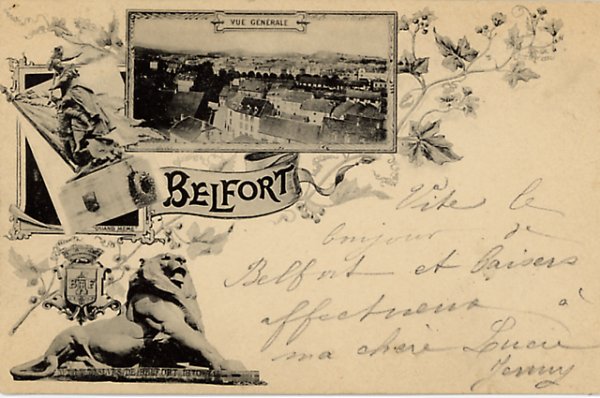 VUE GÉNÉRALE
BELFORT
QUAND MÊME
Vite le
bonjour de
Belfort et baisers
affectueux à
ma chère Lucie
Jenny
DE BELFORT